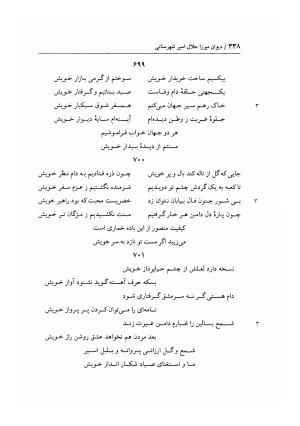 ۳۳۸ / دیوان میرزا جلال اسیر شهرستانی
۶۹۹
بیکسیم ساخت خریدار خویش سوختم از گرمی بازار خویش
یکجهتی حلقهٔ دام وفاست صید بتانیم و گرفتار خویش
۳ خاک رهم سیر جهان می‌کنم همسفر شوق سبکبار خویش
جلوهٔ غربت ز وطن دیده‌ام آینه‌ام سایهٔ دیوار خویش
هر دو جهان خواب فراموشیم
مستم از دیدهٔ بیدار خویش
۷۰۰
جایی که گل از ناله کند بال و پر خویش چون ذره فتادیم به دام نظر خویش
تا کعبه به یک گردش چشم تو دویدیم شرمنده نگشتیم ز عزم سفر خویش
۳ بی شور جنون فال بیابان نتوان زد خضریست محبت که بود راهبر خویش
چون پارهٔ دل دامن هر خار گرفتیم منت نکشیدیم ز مژگان تر خویش
کیفیت منصور از این باده خماری است
می‌زیبد اگر مست تو نازد به سر خویش
۷۰۱
نسخه دارد لعلش از چشم حیاپرداز خویش
بسکه حرف آهسته گوید نشنود آواز خویش
دام هستی گر نه سرمشق گرفتاری شود
نامه‌ای را می‌توان کردن پر پرواز خویش
۳ شمع بالین را غبارم دامن غیرت زند
بعد مردن هم نخواهد عشق روشن راز خویش
شمع و گل ارزانی پروانه و بلبل اسیر
ما و استغنای صیاد شکار انداز خویش